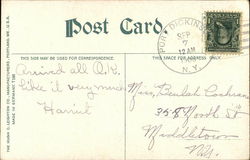 Post Card
THIS SIDE MAY BE USED FOR CORRESPONDENCE.
THIS SPACE FOR ADDRESS ONLY.
PORT DICKINSON
SEP
7
12 AM
N.Y.
Arrived all O.K.
Like it very much
Harriet
Miss, Beulah Cochran
358 North St
Middletown
N.Y.
THE HUGH C. LEIGHTON CO., MANUFACTURERS, PORTLAND, ME. U.S.A.